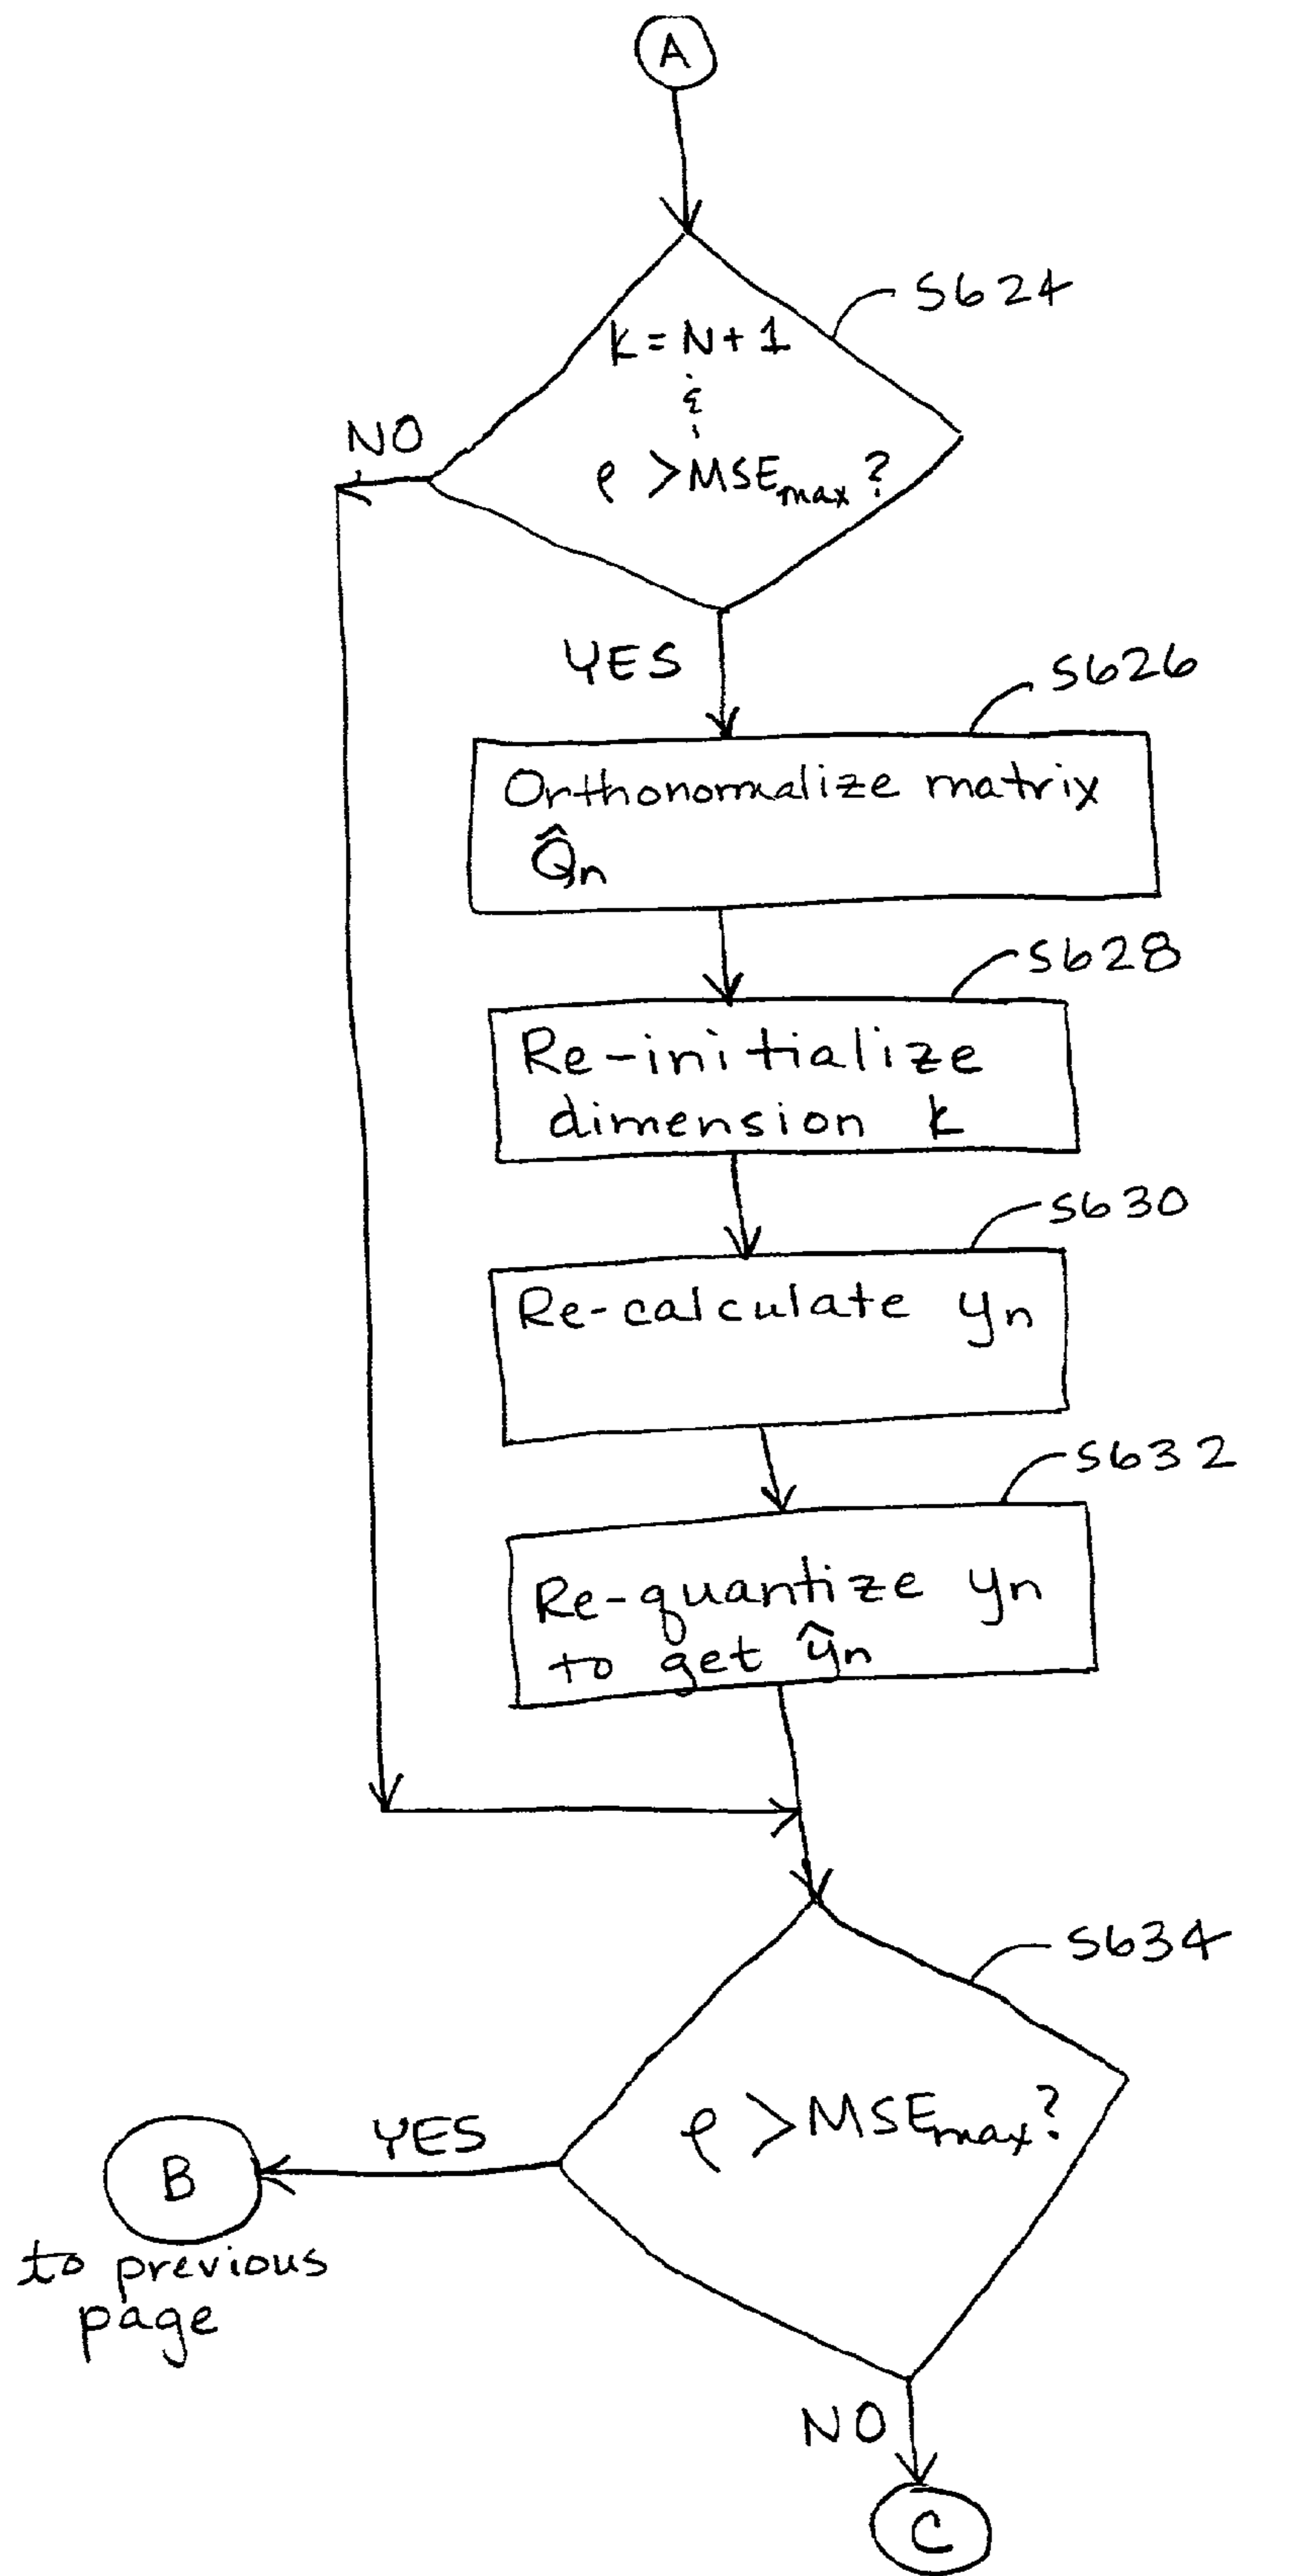 A
S624
k = N + 1
&
ρ > MSEmax ?
NO
YES
S626
Orthonormalize matrix
Q̂n
S628
Re-initialize
dimension k
S630
Re-calculate yn
S632
Re-quantize yn
to get ŷn
S634
ρ > MSEmax?
YES
B
to previous
page
NO
C